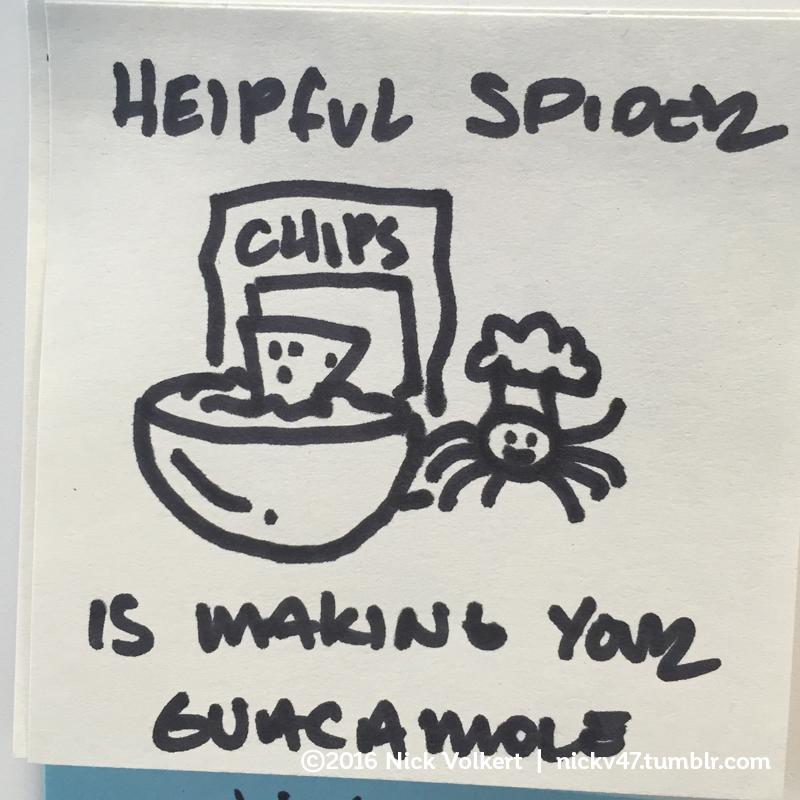 HElPfUL SPIDER
CHIPS
IS MAKING YOUR
GUACAMOLE
©2016 Nick Volkert | nickv47.tumblr.com